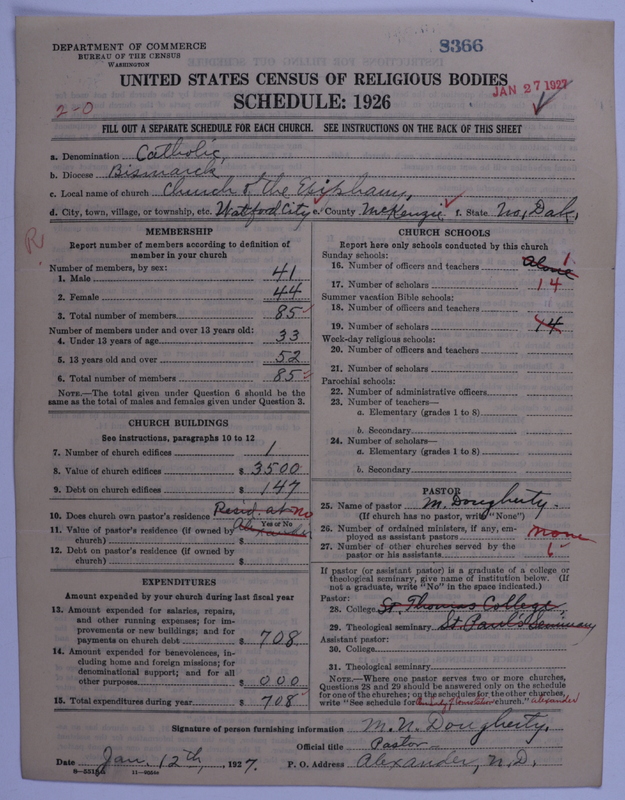 DEPARTMENT OF COMMERCE
BUREAU OF THE CENSUS
WASHINGTON
8366
UNITED STATES CENSUS OF RELIGIOUS BODIES
JAN 27 1927
SCHEDULE: 1926
2-0
FILL OUT A SEPARATE SCHEDULE FOR EACH CHURCH. SEE INSTRUCTIONS ON THE BACK OF THIS SHEET
a. Denomination Catholic,
b. Diocese Bismarck
c. Local name of church Church of the Epiphany,
d. City, town, village, or township, etc. Watford City e. County McKenzie f. State No. Dak.
R
MEMBERSHIP
Report number of members according to definition of member in your church
Number of members, by sex:
1. Male 41
2. Female 44
3. Total number of members 85
Number of members under and over 13 years old:
4. Under 13 years of age 33
5. 13 years old and over 52
6. Total number of members 85
NOTE.—The total given under Question 6 should be the
same as the total of males and females given under Question 3.
CHURCH BUILDINGS
See instructions, paragraphs 10 to 12
7. Number of church edifices 1
8. Value of church edifices $ 3500
9. Debt on church edifices $ 147
10. Does church own pastor's residence Resid. at no
Yes or No
11. Value of pastor's residence (if owned by Alexander
church) $
12. Debt on pastor's residence (if owned by
church) $
EXPENDITURES
Amount expended by your church during last fiscal year
13. Amount expended for salaries, repairs,
and other running expenses; for im-
provements or new buildings; and for
payments on church debt $ 708
14. Amount expended for benevolences, in-
cluding home and foreign missions; for
denominational support; and for all
other purposes $ 000
15. Total expenditures during year $ 708
CHURCH SCHOOLS
Report here only schools conducted by this church
Sunday schools:
16. Number of officers and teachers Alone 1
17. Number of scholars 14
Summer vacation Bible schools:
18. Number of officers and teachers
19. Number of scholars 14
Week-day religious schools:
20. Number of officers and teachers
21. Number of scholars
Parochial schools:
22. Number of administrative officers
23. Number of teachers—
a. Elementary (grades 1 to 8)
b. Secondary
24. Number of scholars—
a. Elementary (grades 1 to 8)
b. Secondary
PASTOR
25. Name of pastor M. Dougherty.
(If church has no pastor, write "None")
26. Number of ordained ministers, if any, em-
ployed as assistant pastors none
27. Number of other churches served by the
pastor or his assistants 1
If pastor (or assistant pastor) is a graduate of a college or
theological seminary, give name of institution below. (If
not a graduate, write "No" in the space indicated.)
Pastor:
28. College St Thomas College,
29. Theological seminary St Paul Seminary
Assistant pastor:
30. College
31. Theological seminary
NOTE.—Where one pastor serves two or more churches,
Questions 28 and 29 should be answered only on the schedule
for one of the churches; on the schedules for the other churches,
write "See schedule for church." Alexander
Signature of person furnishing information M. N. Dougherty.
Official title Pastor
Date Jan. 12th, 1927. P. O. Address Alexander, N. D.